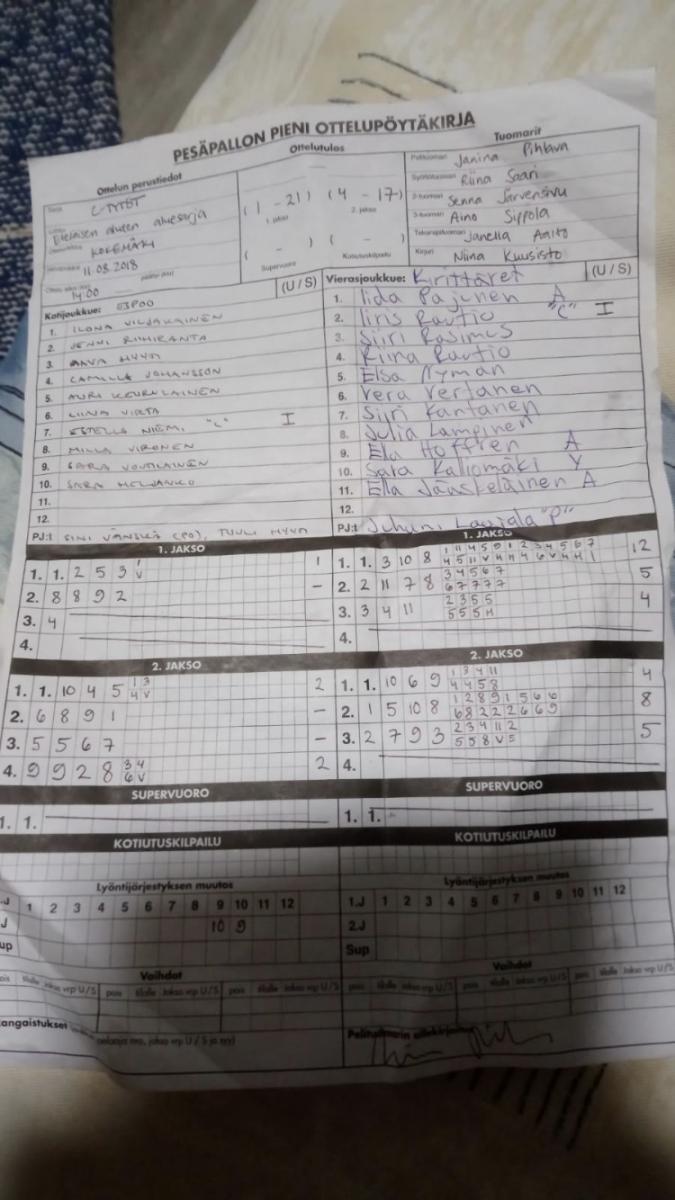 PESÄPALLON PIENI OTTELUPÖYTÄKIRJA
Ottelun perustiedot
Ottelutulos
Tuomarit
C-TYTÖT
Eteläisen alueen aluesarja
KOKEMÄKI
11.08.2018
14:00
(1 - 21) (4 - 17)
1. jakso 2. jakso
( - ) ( - )
Supervuoro Kotiutuskilpailu
Pelituomari Janina Pihlava
Syöttötuomari Riina Saari
2-tuomari Senna Järvensivu
3-tuomari Aino Sippola
Takarajatuomari Janella Aalto
Kirjuri Niina Kuusisto
Kotijoukkue: ESPOO (U / S)
1. ILONA VILJAKAINEN
2. JENNI RIIHIRANTA
3. AAVA HYYTI
4. CAMILLA JOHANSSON
5. AURA KEURULAINEN
6. LIINA VIRTA
7. ESTELLA NIEMI "C" I
8. MILLA VIRONEN
9. SARA VOUTILAINEN
10. SARA HELJANKO
11.
12.
PJ:t SINI VÄNSKÄ (PO), TUULI
Vierasjoukkue: Kirittäret (U / S)
1. Iida Pajunen A
2. Iiris Rautio "C" I
3. Siiri Rasimus
4. Riina Rautio
5. Elsa Nyman
6. Vera Vertanen
7. Siiri Kantanen
8. Julia Lampinen
9. Ella Hoffren A
10. Sara Kaliomäki Y
11. Ella Jääskeläinen A
12.
PJ:t Juhani Laurjala "P"
1. JAKSO
1. 1. 2 5 3 1
V
1
2. 8 8 9 2
3. 4
4.
1. JAKSO
1. 1. 3 10 8
12
2. 2 11 7 8 3 4 5 6 7
6 7 7 7 7
5
3. 3 4 11 2 3 5 5
5 5 5 H
4
4.
2. JAKSO
1. 1. 10 4 5 1 3
4 V
2
2. 6 8 9 1 -
3. 5 5 6 7 -
4. 9 9 2 8 3 4
6 V
2
2. JAKSO
1. 1. 10 6 9 1 3 4 11
4 4 5 8
4
2. 1 5 10 8 1 2 8 9 1 5 6 6
6 8 2 2 2 6 6 9
8
3. 2 7 9 3 2 3 4 11 2
5 5 8 V 5
5
4.
SUPERVUORO
1. 1.
SUPERVUORO
1. 1.
KOTIUTUSKILPAILU
KOTIUTUSKILPAILU
Lyöntijärjestyksen muutos
.J 1 2 3 4 5 6 7 8 9 10 11 12
J 10 9
up
Lyöntijärjestyksen muutos
1.J 1 2 3 4 5 6 7 8 9 10 11 12
2.J
Sup
Vaihdot
pois tilalle Jakso vrp U/S pois tilalle Jakso vrp U/S
Vaihdot
pois tilalle Jakso vrp U/S pois tilalle Jakso vrp U/S
angaistukset
pelaaja nro, jakso vrp U / S ja syy)
Pelituomarin allekirjoitus